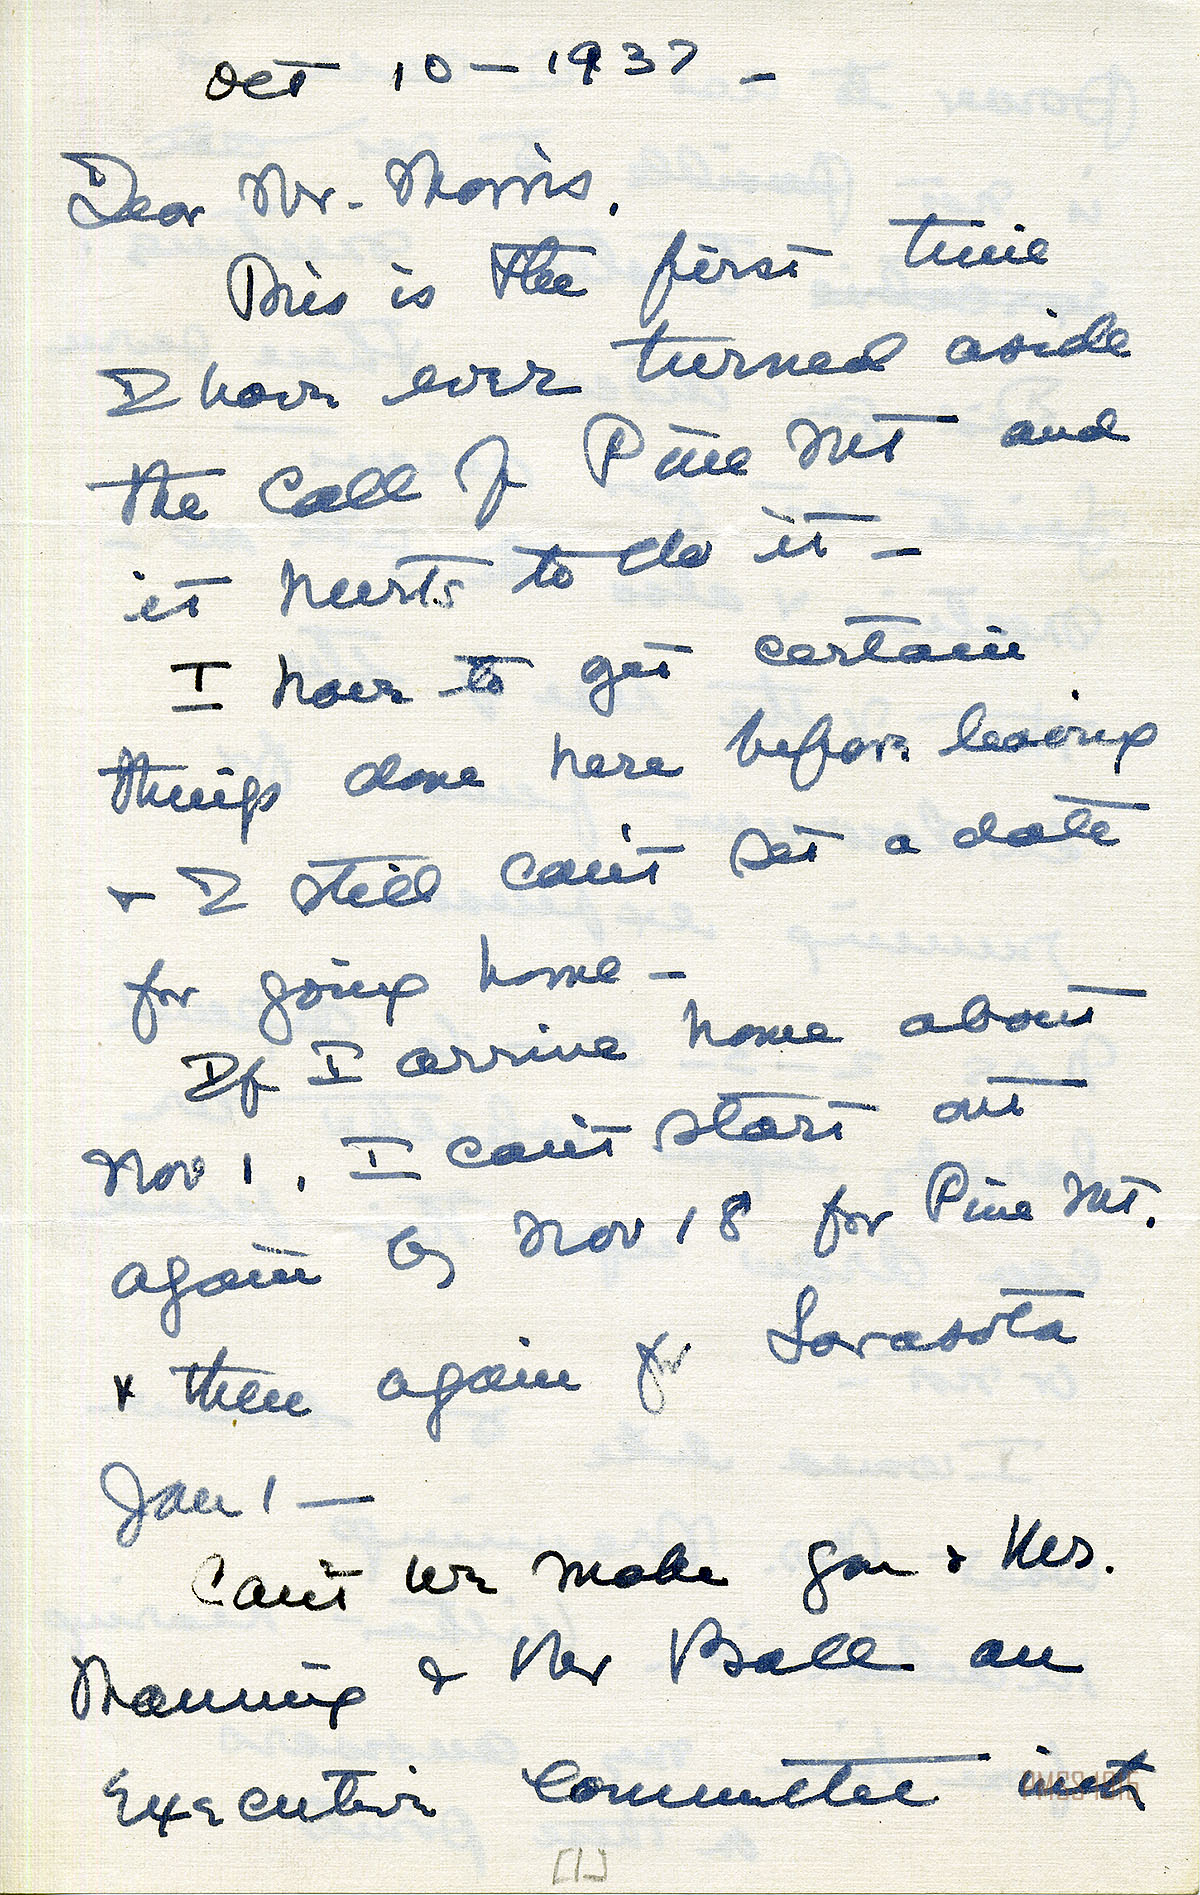 Oct 10 - 1937 -
Dear Mr. Morris,
This is the first time
I have ever turned aside
the call of Pine Mt and
it hurts to do it -
I have to get certain
things done here before leaving
& I still can't set a date
for going home -
If I arrive home about
Nov 1, I can't start out
again by Nov 18 for Pine Mt.
& then again for Sarasota
Jan 1 —
Can't we make you & Mrs.
Manning & Mr Ball an
Executive Committee with
[1]